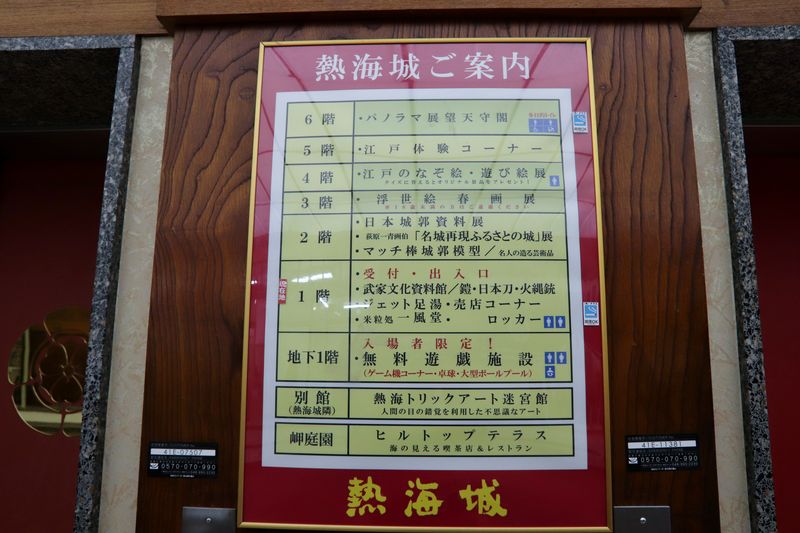 熱海城ご案内
6階 ・パノラマ展望天守閣
5階 ・江戸体験コーナー
4階 ・江戸のなぞ絵・遊び絵展
クイズに答えるとオリジナル景品をプレゼント!
3階 ・浮世絵 春画展
※18歳未満の方はご遠慮ください
2階 ・日本城郭資料展
・萩原一青画伯「名城再現ふるさとの城」展
・マッチ棒城郭模型/名人の造る芸術品
現在地
1階 ・受付・出入口
・武家文化資料館/鎧・日本刀・火縄銃
・ジェット足湯・売店コーナー
・米粒処 一風堂・ ロッカー
地下1階 入場者限定!
・無料遊戯施設
(ゲーム機コーナー・卓球・大型ボールプール)
別館 熱海トリックアート迷宮館
(熱海城隣) 人間の目の錯覚を利用した不思議なアート
岬庭園 ヒルトップテラス
海の見える喫茶店&レストラン
熱海城
41E-07507
0570-070-990
41E-11381
0570-070-990